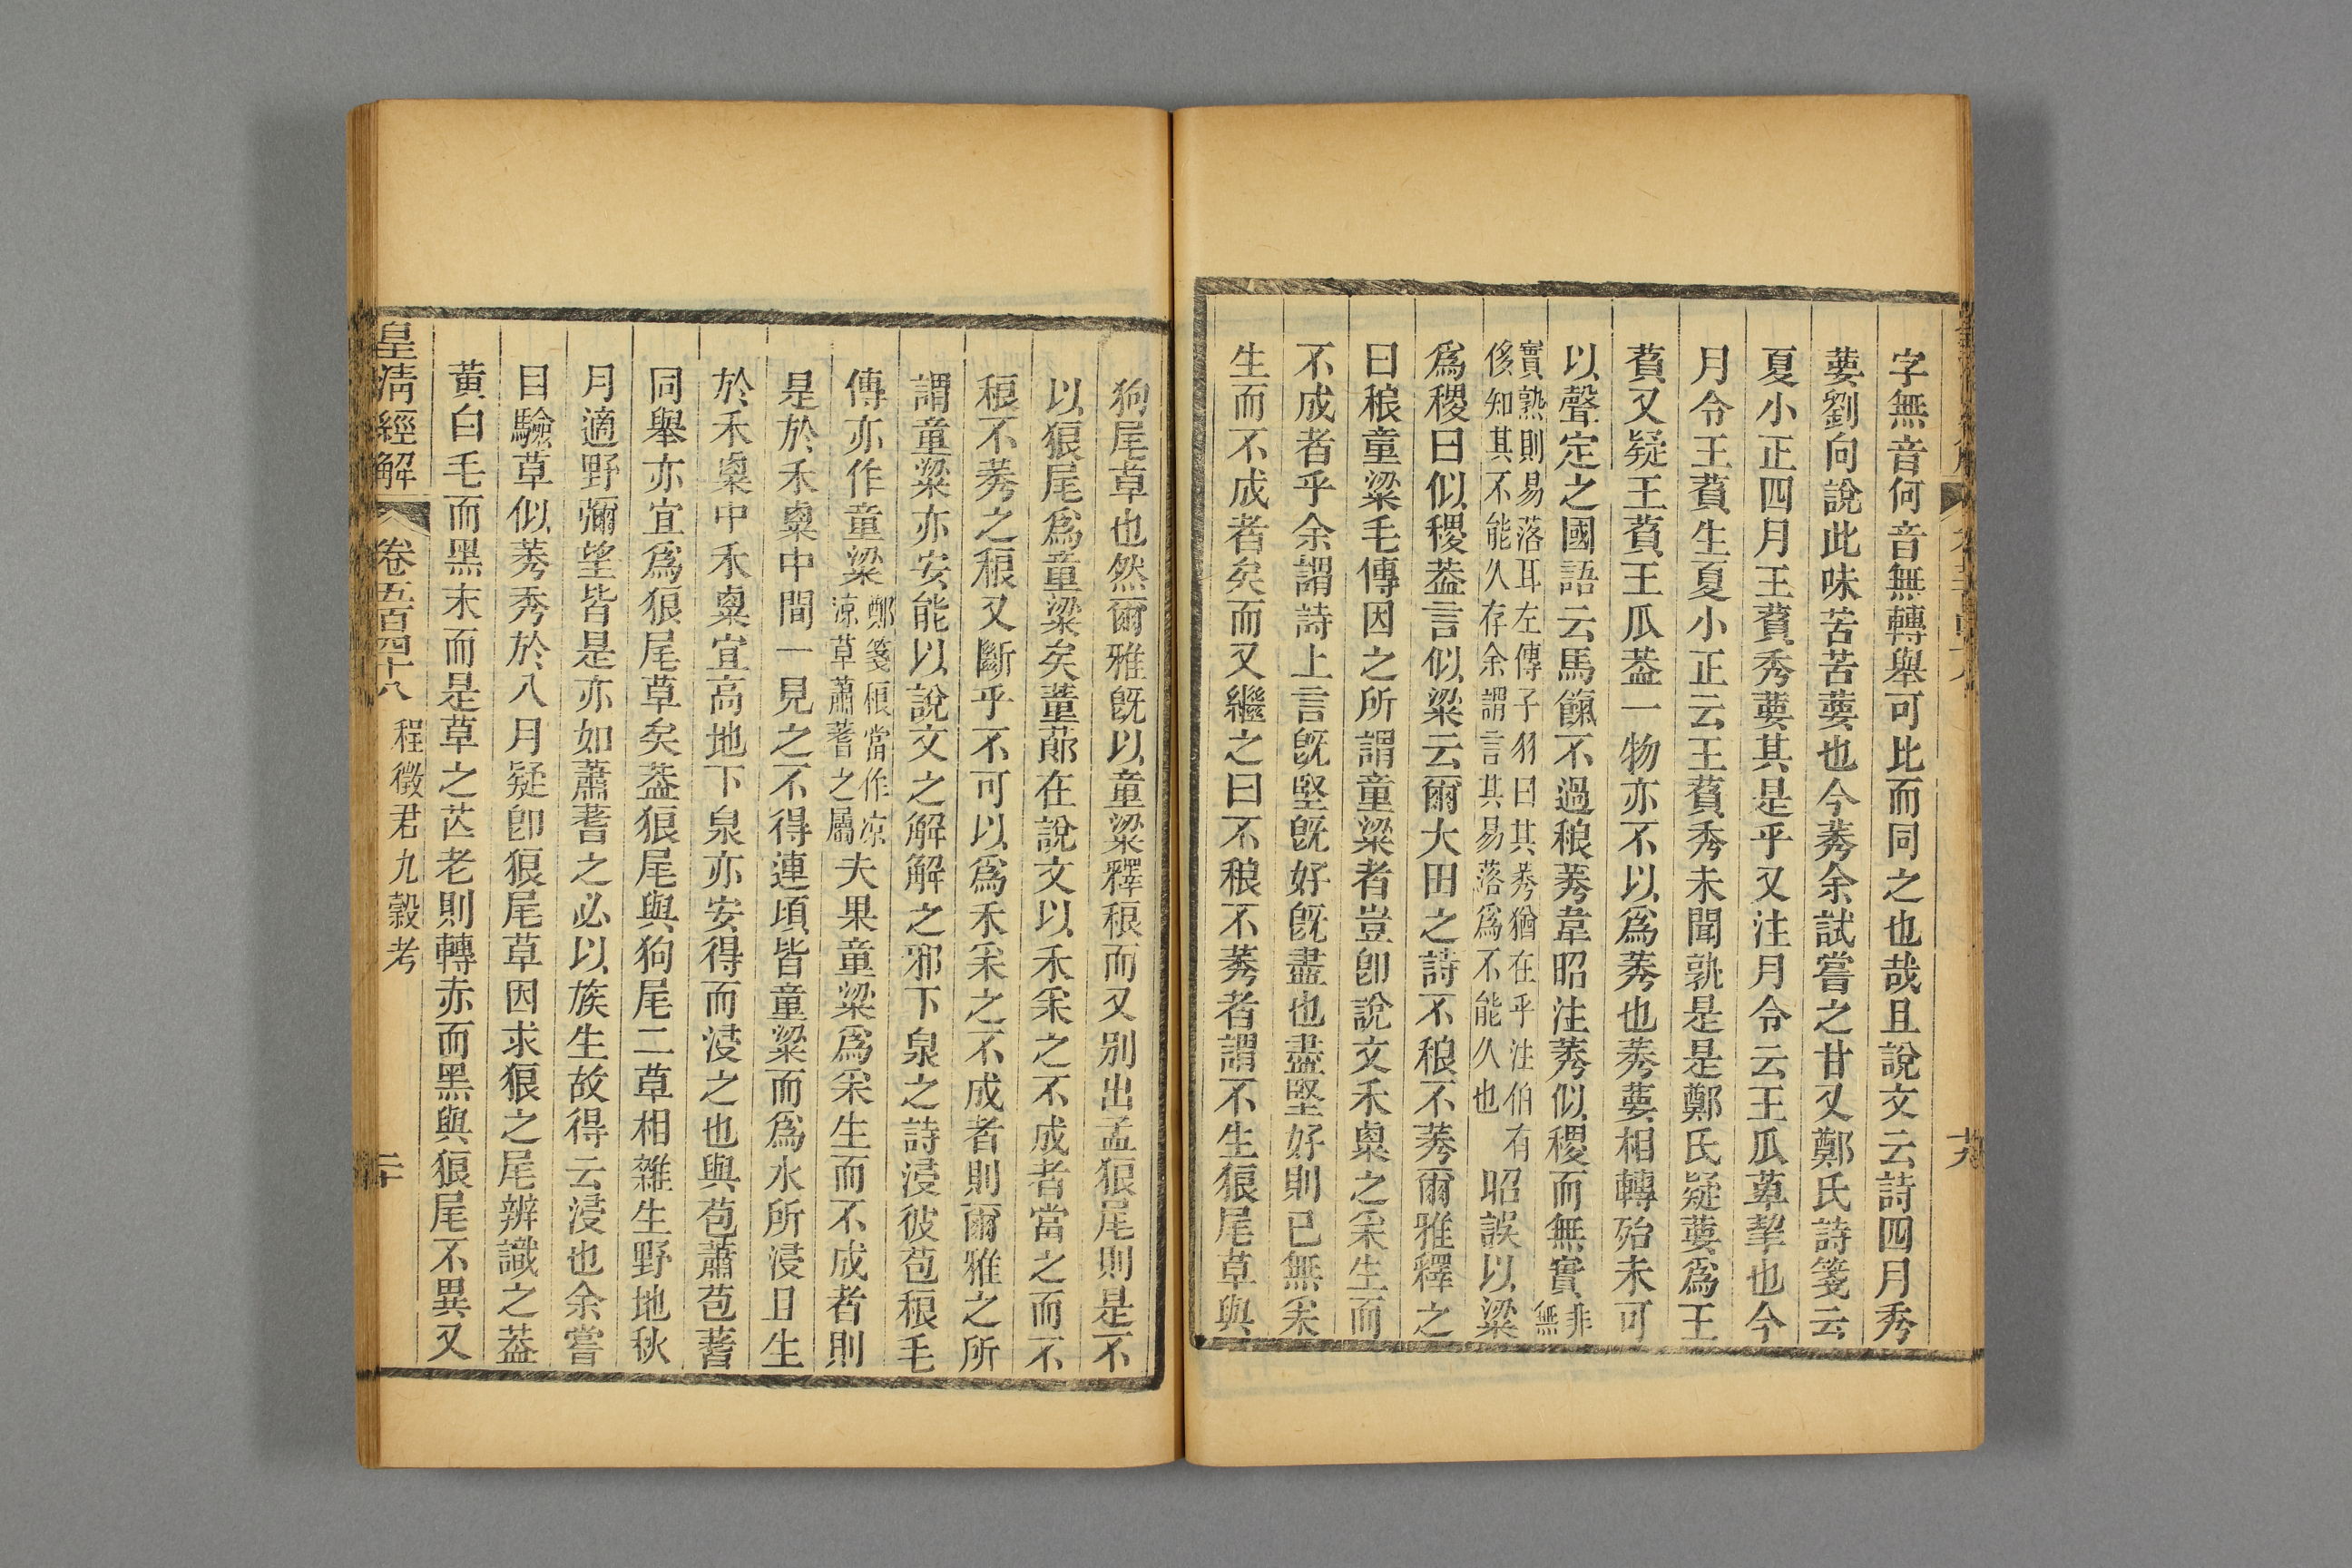 字無音何音無轉舉可比而同之也哉且說文云詩四月秀
葽劉向說此味苦苦葽也今莠余試嘗之甘又鄭氏詩箋云
夏小正四月王萯秀葽其是乎又注月令云王瓜萆挈也今
月令王萯生夏小正云王萯秀未聞孰是是鄭氏疑葽爲王
萯又疑王萯王瓜葢一物亦不以爲莠也莠葽相轉殆未可
以聲定之國語云馬餼不過稂莠韋昭注莠似稷而無實非無
實熟則易落耳左傳子羽曰其莠猶在乎注伯有
侈知其不能久存余謂言其易落爲不能久也
昭誤以粱
爲稷曰似稷葢言似粱云爾大田之詩不稂不莠爾雅釋之
曰稂童粱毛傳因之所謂童粱者豈卽說文禾𥠻之采生而
不成者乎余謂詩上言旣堅旣好旣盡也盡堅好則已無采
生而不成者矣而又繼之曰不稂不莠者謂不生狼尾草與
狗尾草也然爾雅旣以童粱釋稂而又別出孟狼尾則是不
以狼尾爲童粱矣董蓈在說文以禾采之不成者當之而不
稂不莠之稂又斷乎不可以爲禾采之不成者則爾雅之所
謂童粱亦安能以說文之解解之邪下泉之詩浸彼苞稂毛
傳亦作童粱
鄭箋稂當作凉
涼草蕭蓍之屬
夫果童粱爲采生而不成者則
是於禾𥠻中間一見之不得連頃皆童粱而爲水所浸且生
於禾𥠻中禾𥠻宜高地下泉亦安得而浸之也與苞蕭苞蓍
同舉亦宜爲狼尾草矣葢狼尾與狗尾二草相雜生野地秋
月適野彌望皆是亦如蕭蓍之必以族生故得云浸也余嘗
目驗草似莠秀於八月疑卽狼尾草因求狼之尾辨識之葢
黃白毛而黑末而是草之芒老則轉赤而黑與狼尾不異又
皇清經解
卷五百四十八
程徵君九穀考
二十